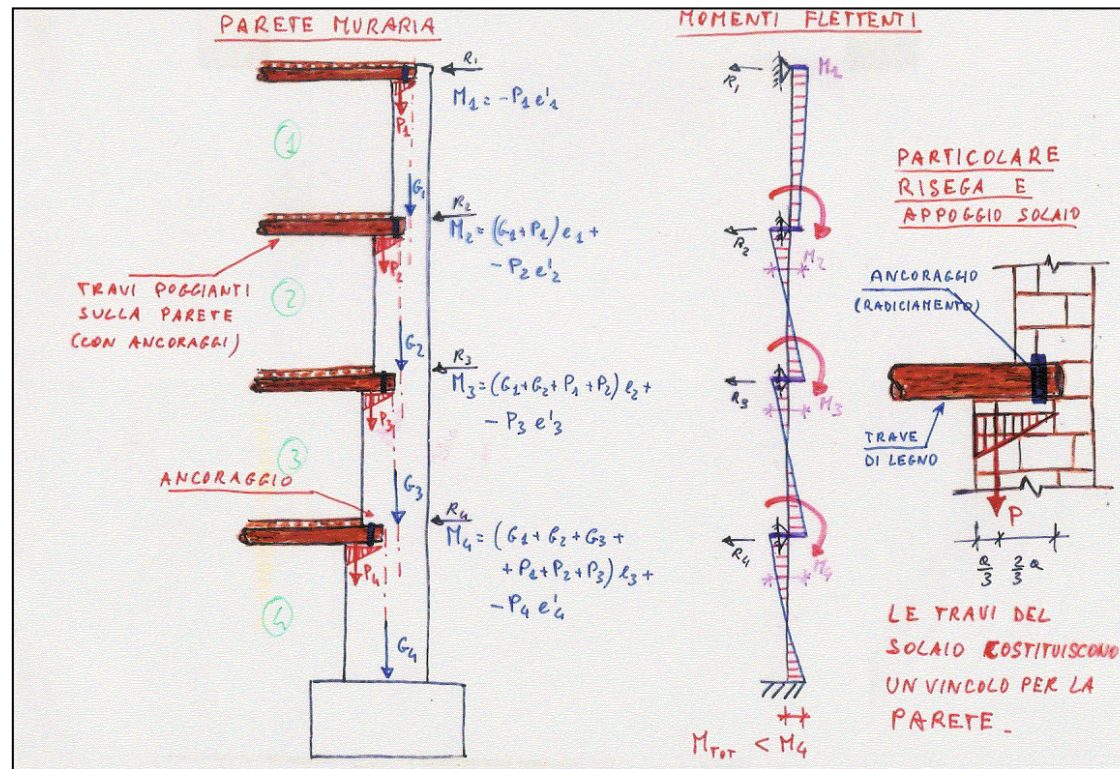 PARETE MURARIA
R1
M1 = -P1 e'1
P1
1
G1
R2
M2 = (G1+P1) e1 +
- P2 e'2
P2
TRAVI POGGIANTI
SULLA PARETE
(CON ANCORAGGI)
2
G2
R3
M3 = (G1+G2+P1+P2) e2 +
- P3 e'3
P3
3
ANCORAGGIO
G3
R4
M4 = (G1+G2+G3 +
+P1+P2+P3) e3 +
- P4 e'4
P4
4
G4
MOMENTI FLETTENTI
M2
R1
R2
M2
R3
M3
R4
M4
MTOT < M4
PARTICOLARE
RISEGA E
APPOGGIO SOLAIO
ANCORAGGIO
(RADICIAMENTO)
TRAVE
DI LEGNO
P
a/3 2/3 a
LE TRAVI DEL
SOLAIO COSTITUISCONO
UN VINCOLO PER LA
PARETE_